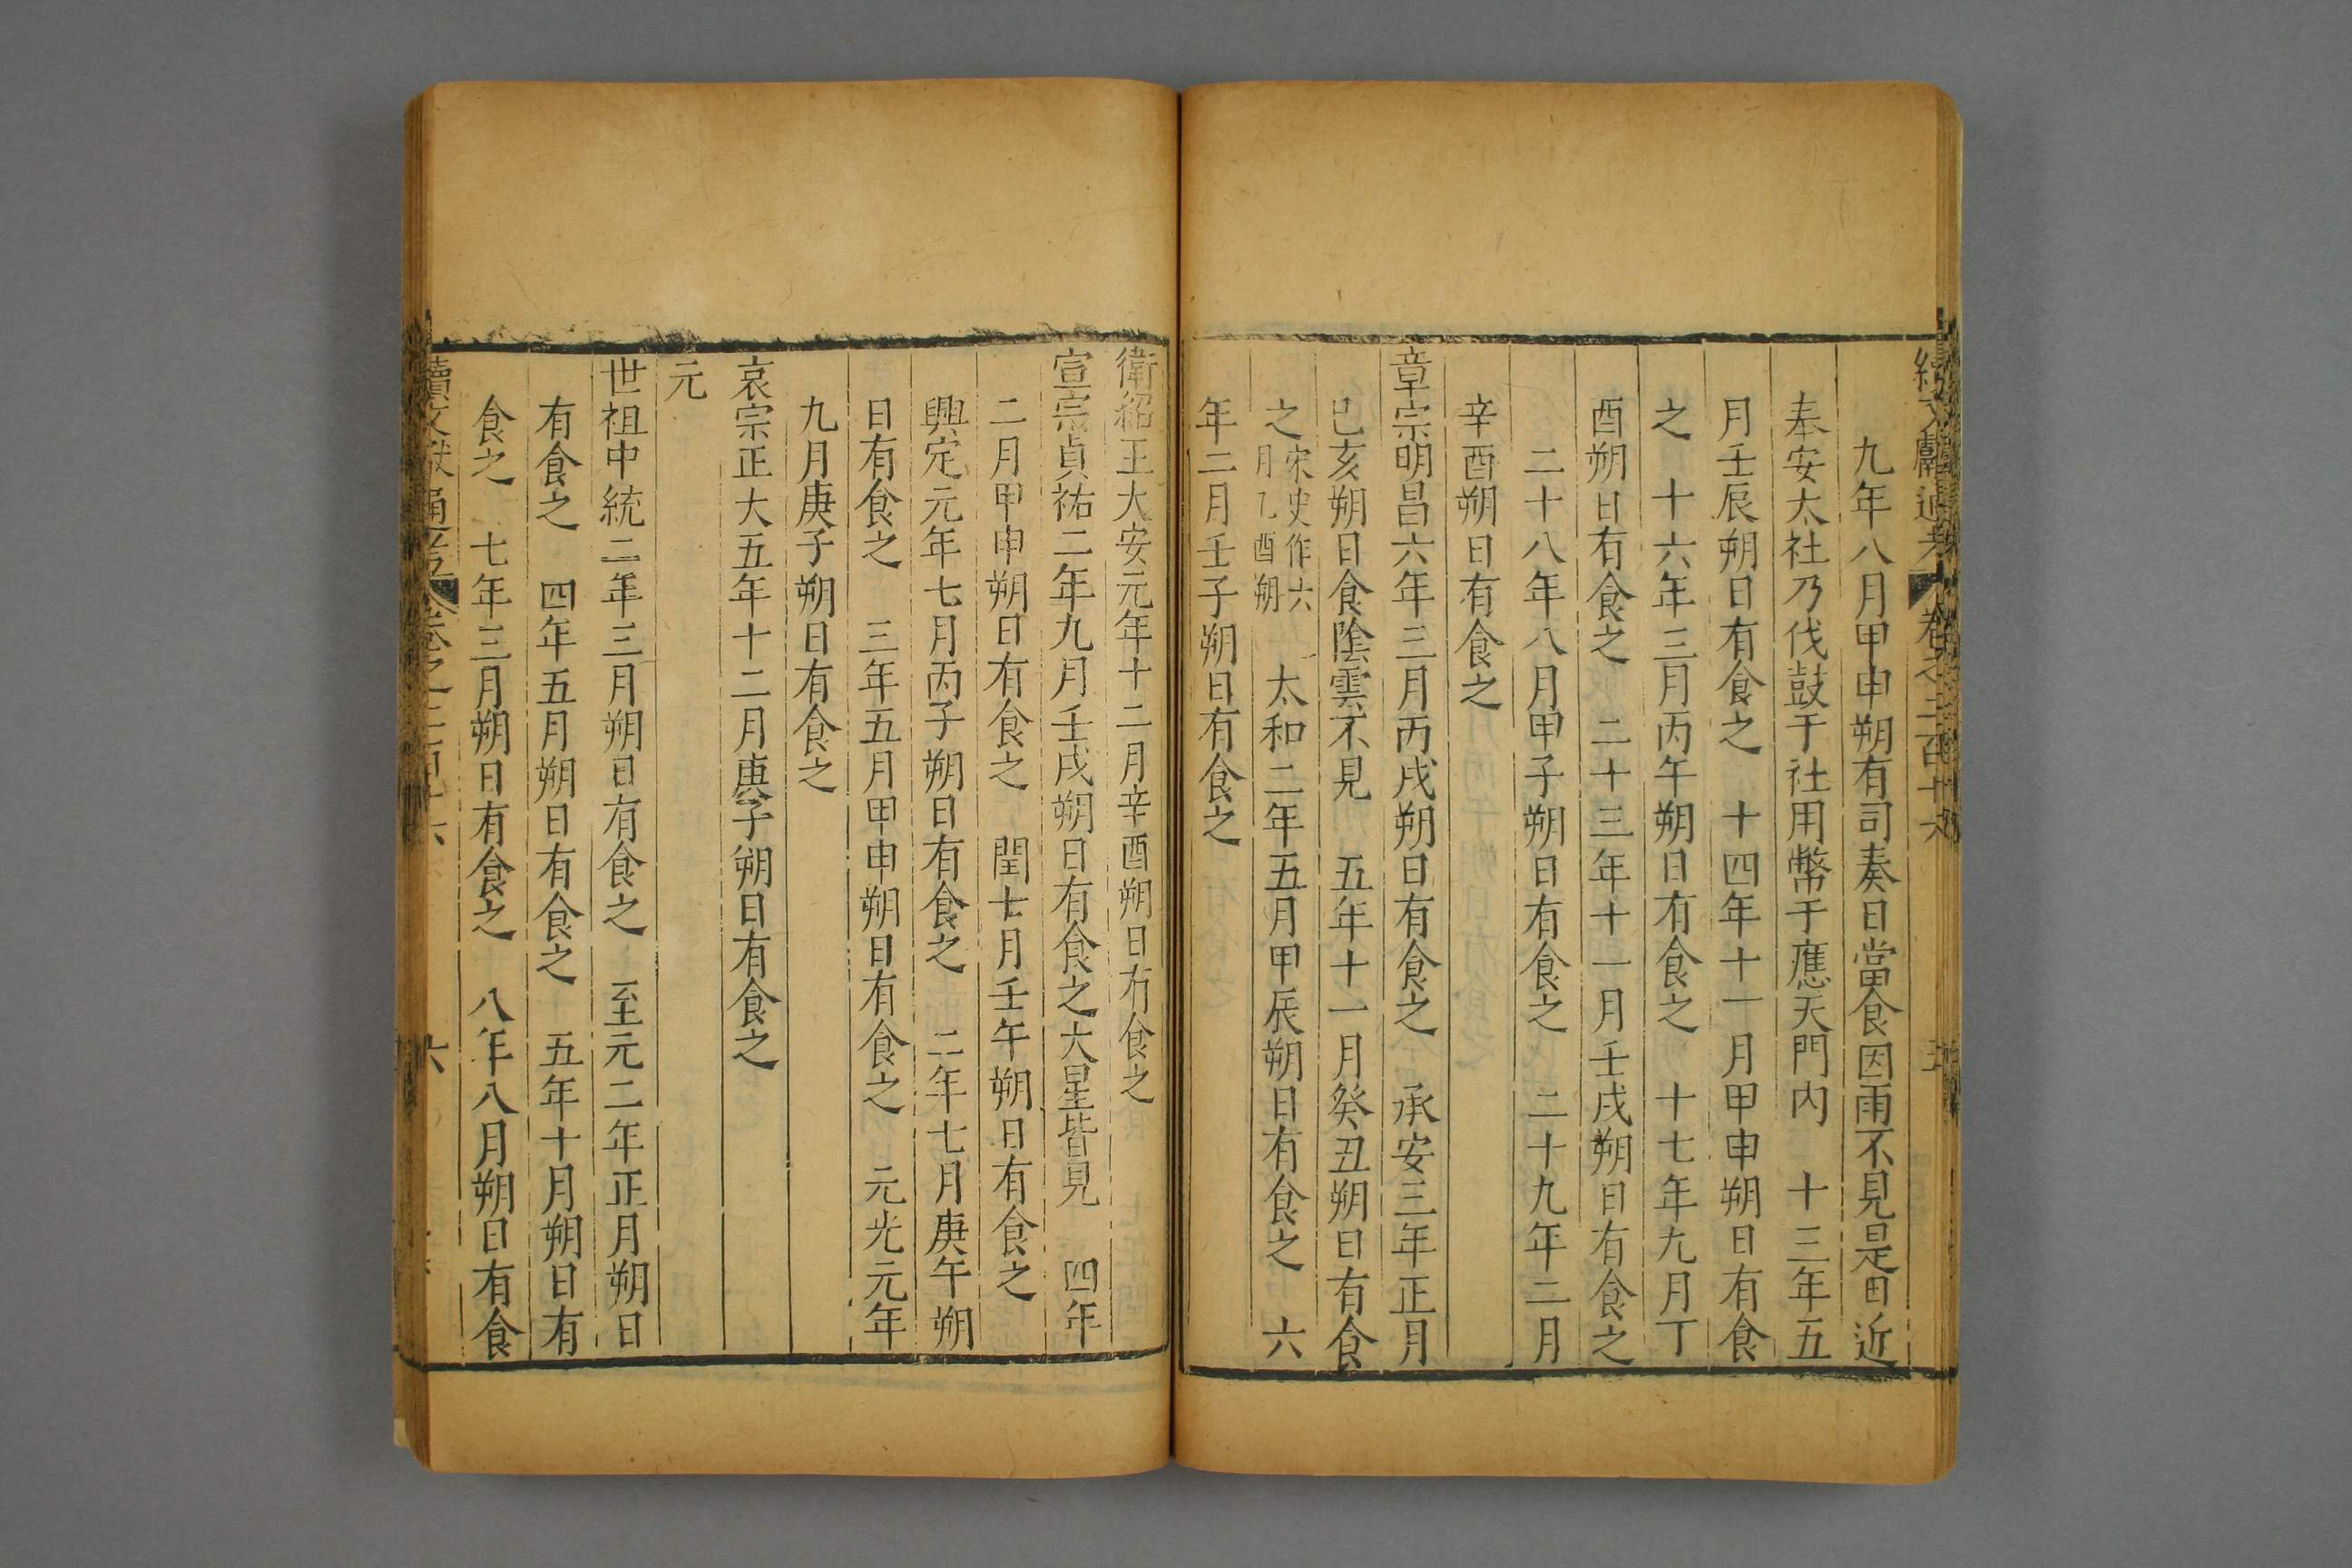 續文獻通考 卷之二百十六 五
九年八月甲申朔有司奏日當食因雨不見是日近
奉安太社乃伐鼓于社用幣于應天門内 十三年五
月壬辰朔日有食之 十四年十一月甲申朔日有食
之 十六年三月丙午朔日有食之 十七年九月丁
酉朔日有食之 二十三年十一月壬戌朔日有食之
二十八年八月甲子朔日有食之 二十九年二月
辛酉朔日有食之
章宗明昌六年三月丙戌朔日有食之 承安三年正月
己亥朔日食陰雲不見 五年十一月癸丑朔日有食
之宋史作六月乙酉朔 太和二年五月甲辰朔日有食之 六
年二月壬子朔日有食之
衛紹王大安元年十二月辛酉朔日有食之
宣宗貞祐二年九月壬戌朔日有食之大星皆見 四年
二月甲申朔日有食之 閏七月壬午朔日有食之
興定元年七月丙子朔日有食之 二年七月庚午朔
日有食之 三年五月甲申朔日有食之 元光元年
九月庚子朔日有食之
哀宗正大五年十二月庚子朔日有食之
元
世祖中統二年三月朔日有食之 至元二年正月朔日
有食之 四年五月朔日有食之 五年十月朔日有
食之 七年三月朔日有食之 八年八月朔日有食
續文獻通考 卷之二百十六 六